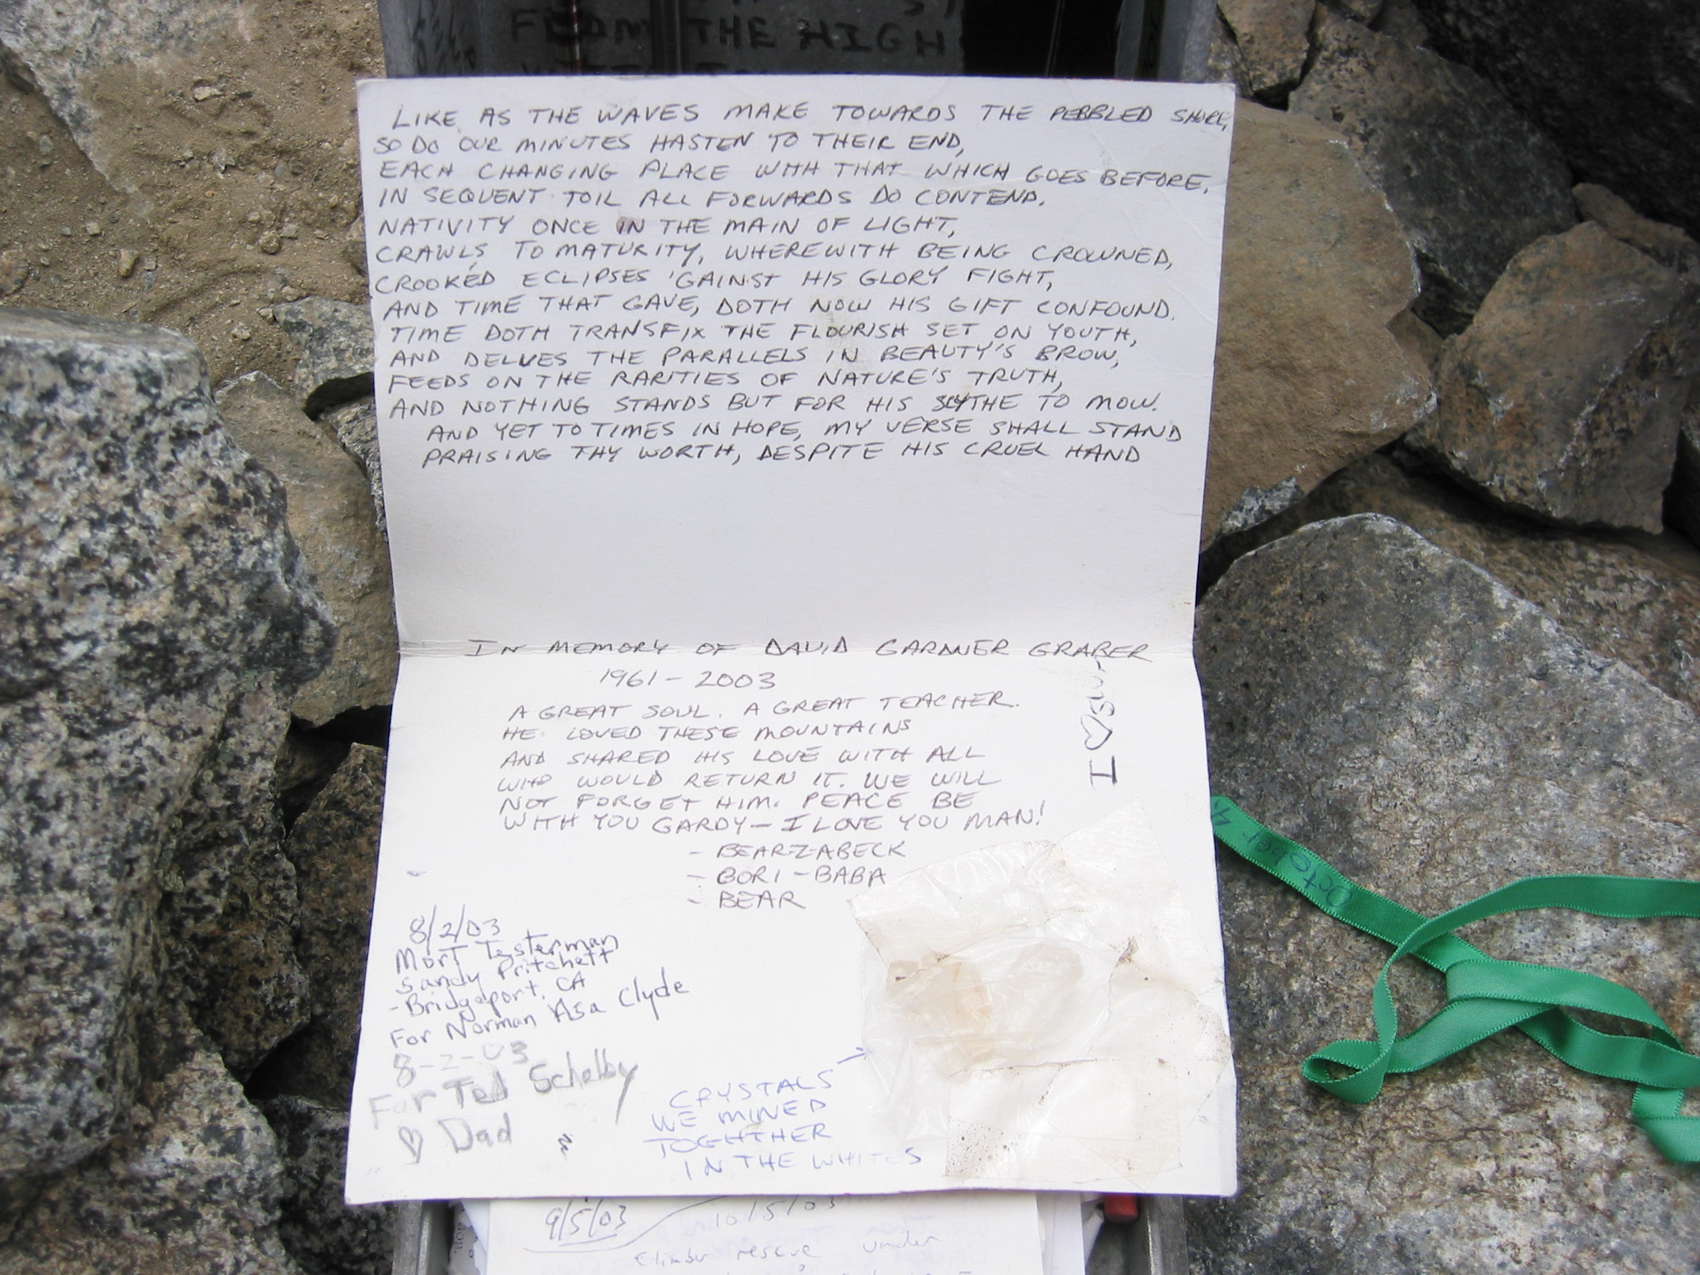 FROM THE HIGH
LIKE AS THE WAVES MAKE TOWARDS THE PEBBLED SHORE,
SO DO OUR MINUTES HASTEN TO THEIR END,
EACH CHANGING PLACE WITH THAT WHICH GOES BEFORE,
IN SEQUENT TOIL ALL FORWARDS DO CONTEND.
NATIVITY ONCE IN THE MAIN OF LIGHT,
CRAWLS TO MATURITY, WHEREWITH BEING CROWNED,
CROOKED ECLIPSES 'GAINST HIS GLORY FIGHT,
AND TIME THAT GAVE, DOTH NOW HIS GIFT CONFOUND.
TIME DOTH TRANSFIX THE FLOURISH SET ON YOUTH,
AND DELVES THE PARALLELS IN BEAUTY'S BROW,
FEEDS ON THE RARITIES OF NATURE'S TRUTH,
AND NOTHING STANDS BUT FOR HIS SCYTHE TO MOW.
AND YET TO TIMES IN HOPE, MY VERSE SHALL STAND
PRAISING THY WORTH, DESPITE HIS CRUEL HAND
IN MEMORY OF DAVID GARDNER GRABER
1961 - 2003
A GREAT SOUL. A GREAT TEACHER.
HE LOVED THESE MOUNTAINS
AND SHARED HIS LOVE WITH ALL
WHO WOULD RETURN IT. WE WILL
NOT FORGET HIM. PEACE BE
WITH YOU GARDY - I LOVE YOU MAN!
- BEAR-Z-ABECK
- GORI-BABA
- BEAR
I ♡
8/2/03
Mort Testerman
Sandy Pritchett
- Bridgeport, CA
For Norman Asa Clyde
8-2-03
For Ted Schelby
♡ Dad
CRYSTALS
WE MINED
TOGHTHER
IN THE WHITES
October 4,
9/5/03
10/5/03
Climber rescue under